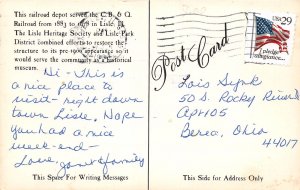 This railroad depot served the C.B. & Q.
Railroad from 1883 to 1978 in Lisle, Il.
The Lisle Heritage Society and Lisle Park
District combined efforts to restore the
structure to its pre-1900 appearance so it
would serve the community as a historical
museum.
Hi - This is
a nice place to
visit - right down
town Lisle. Hope
you had a nice
week-end -
Love, Jan & family
This Space For Writing Messages
Post Card
USA 29
I pledge
allegiance...
Lois
50 S. Rocky River
Apt 105
Berea, Ohio
44017
This Side For Address Only